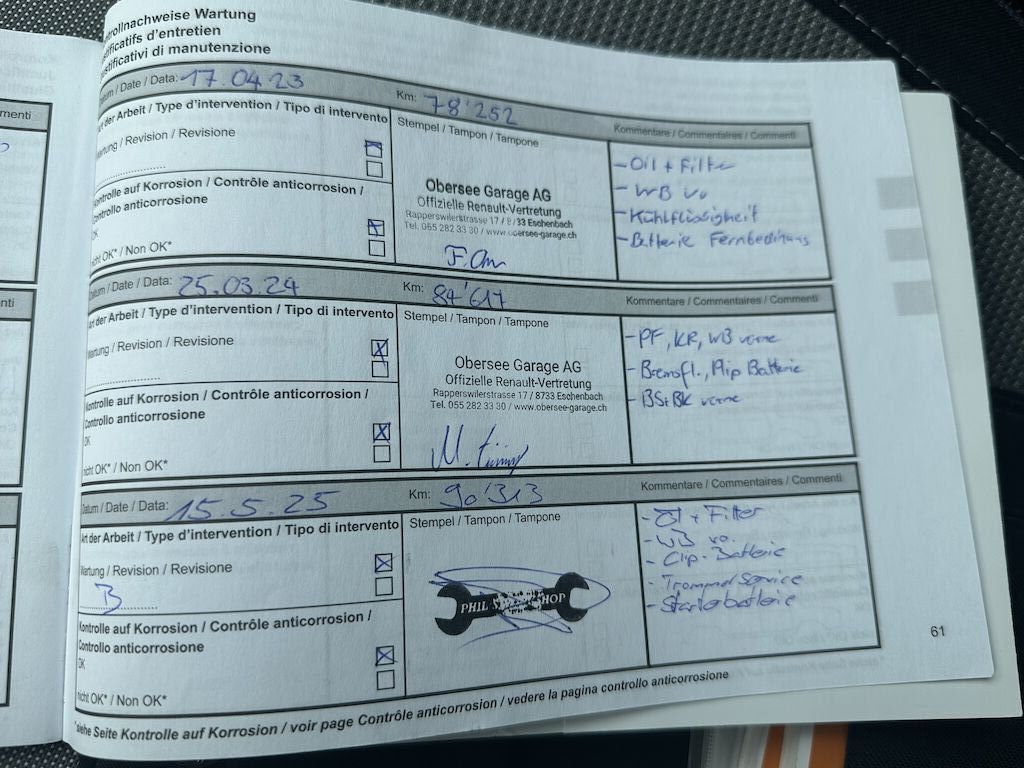 trollnachweise Wartung
tificatifs d'entretien
stificativi di manutenzione
menti
nti
Datum / Date / Data: 17.04.23
Km: 78'252
Kommentare / Commentaires / Commenti
Art der Arbeit / Type d'intervention / Tipo di intervento
Wartung / Revision / Revisione
Kontrolle auf Korrosion / Contrôle anticorrosion /
Controllo anticorrosione
OK
nicht OK* / Non OK*
Stempel / Tampon / Tampone
Obersee Garage AG
Offizielle Renault-Vertretung
Rapperswilerstrasse 17 / 8733 Eschenbach
Tel. 055 282 33 30 / www.obersee-garage.ch
- Oil + Filter
- WB vo
- Kühlflüssigkeit
- Batterie Fernbedinung
Datum / Date / Data: 25.03.24
Km: 84'617
Kommentare / Commentaires / Commenti
Art der Arbeit / Type d'intervention / Tipo di intervento
Wartung / Revision / Revisione
Kontrolle auf Korrosion / Contrôle anticorrosion /
Controllo anticorrosione
OK
nicht OK* / Non OK*
Stempel / Tampon / Tampone
Obersee Garage AG
Offizielle Renault-Vertretung
Rapperswilerstrasse 17 / 8733 Eschenbach
Tel. 055 282 33 30 / www.obersee-garage.ch
- PF, KR, WB vorne
- Bremsfl., Batterie
- BS+BK vorne
Datum / Date / Data: 15.5.25
Km: 90'313
Kommentare / Commentaires / Commenti
Art der Arbeit / Type d'intervention / Tipo di intervento
Wartung / Revision / Revisione
B
Kontrolle auf Korrosion / Contrôle anticorrosion /
Controllo anticorrosione
OK
nicht OK* / Non OK*
Stempel / Tampon / Tampone
PHIL SHOP
- Öl + Filter
- WB vo.
- Clip-Batterie
- Trommel Service
- Starterbatterie
*siehe Seite Kontrolle auf Korrosion / voir page Contrôle anticorrosion / vedere la pagina controllo anticorrosione
61